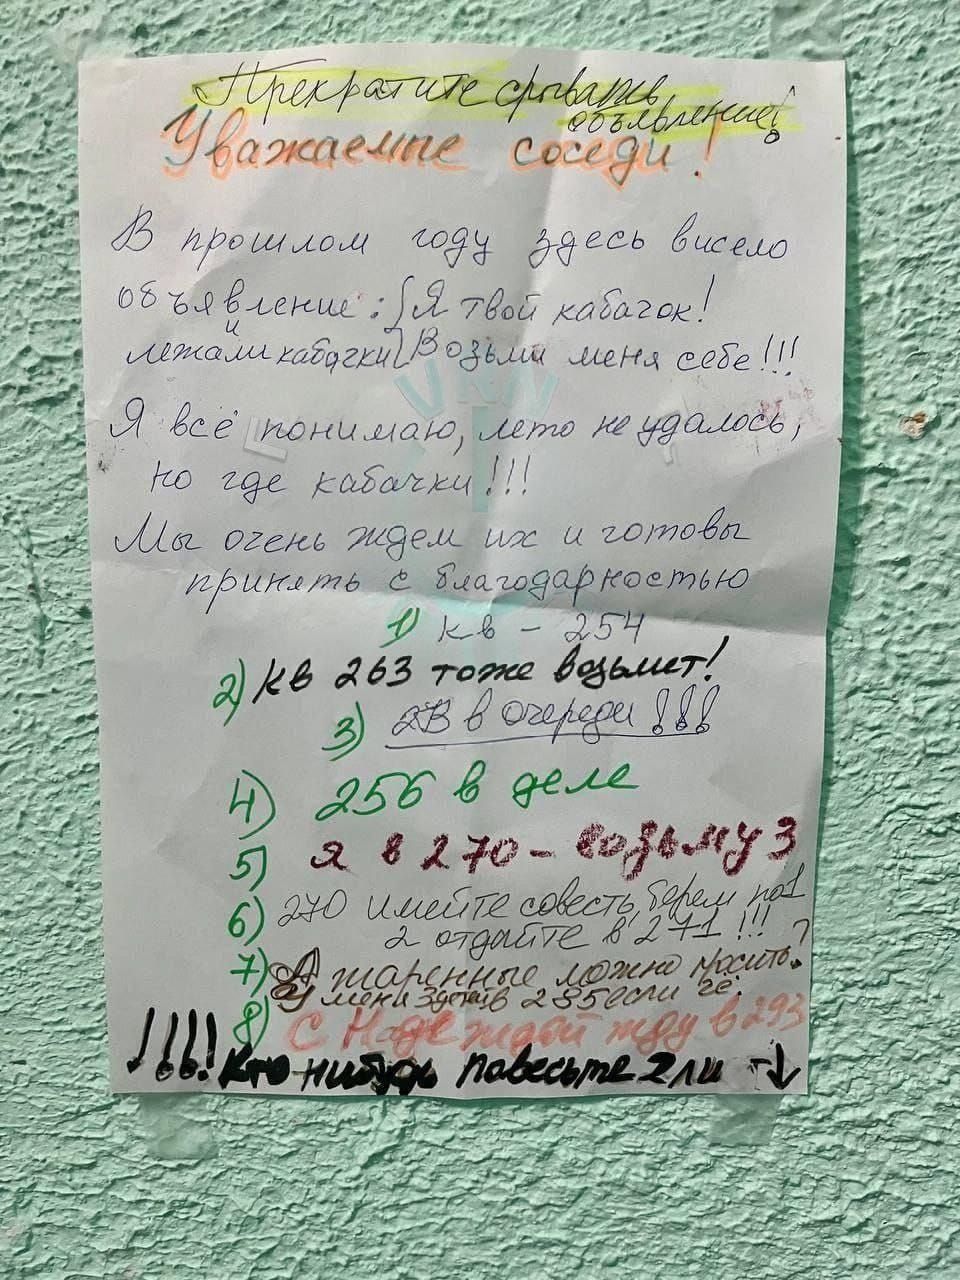 Прекратите срывать
объявление!
Уважаемые соседи!
В прошлом году здесь висело
объявление: Я твой кабачок!
и
лежали кабачки Возьми меня себе!!!
Я всё понимаю, лето не удалось,
но где кабачки!!!
Мы очень ждем их и готовы
принять с благодарностью
1) кв - 254
2) Кв 263 тоже возьмет!
3) 2В в очереди!!!
4) 256 в деле
5) Я в 270 - возьму 3
6) 270 имейте совесть, берем по 1
2 отдайте в 271!!!
7) А жаренные можно просить?
У меня 3 детей в 235 если чё.
8) С Надеждой жду в 293
!!!! Кто нибудь повесьте 2 ли
VRN